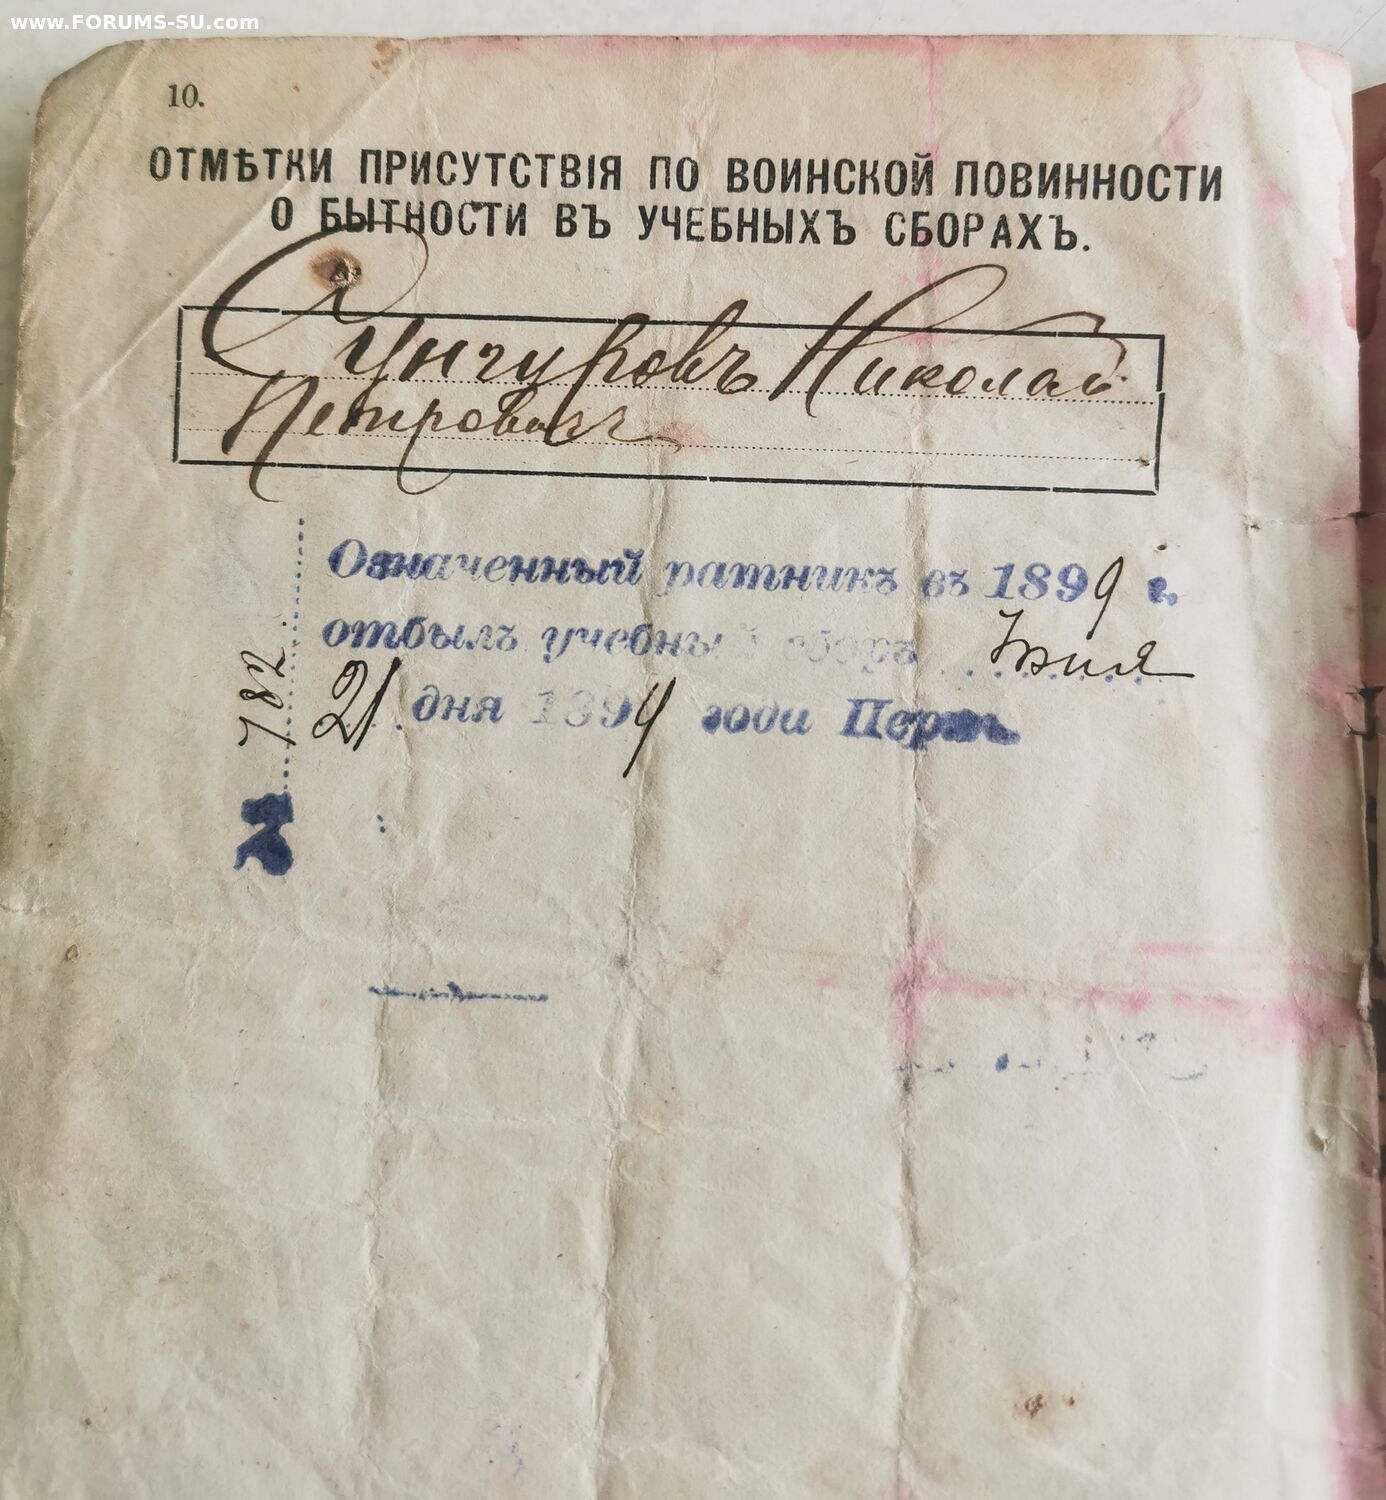 www.FORUMS-SU.com
10.
ОТМѢТКИ ПРИСУТСТВІЯ ПО ВОИНСКОЙ ПОВИННОСТИ
О БЫТНОСТИ ВЪ УЧЕБНЫХЪ СБОРАХЪ.
Сунгуровъ Николай
Петровичъ
Означенный ратникъ въ 1899 г.
отбылъ учебный сборъ
21 дня 1899 года Пермь
№ 782